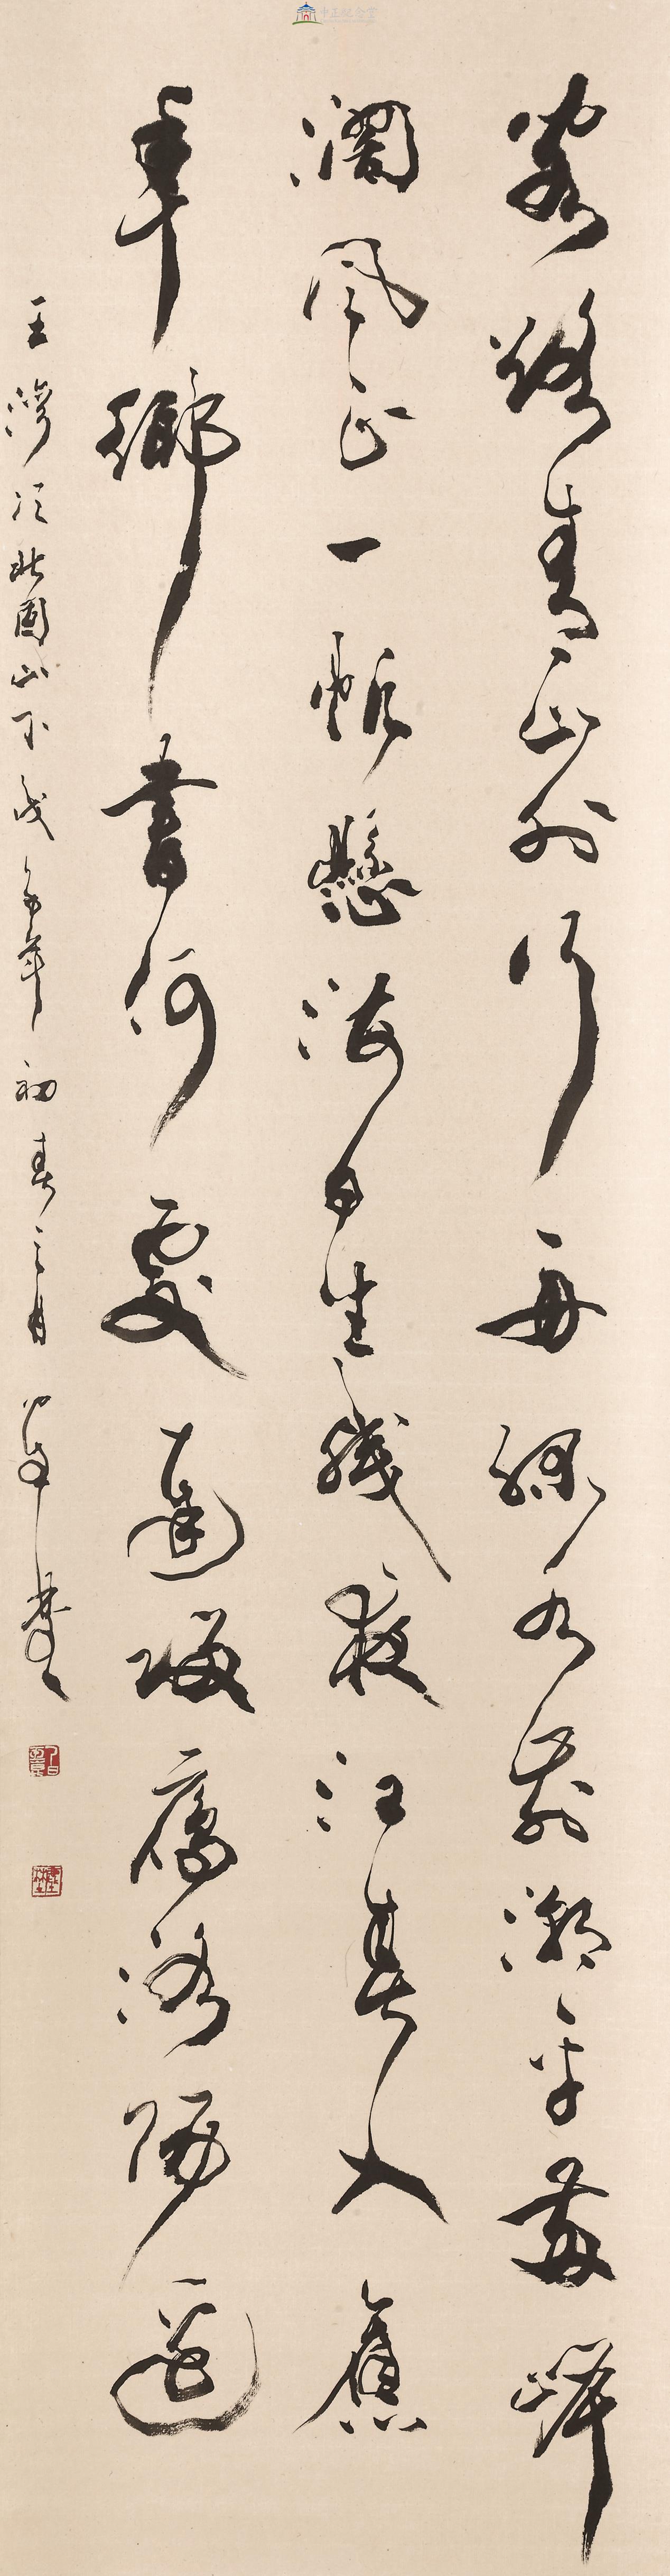 客路青山外行舟綠水前潮平兩岸
闊風正一帆懸海日生殘夜江春入舊
年鄉書何處達歸雁洛陽邊
王灣次北固山下 年初春之月
中正紀念堂